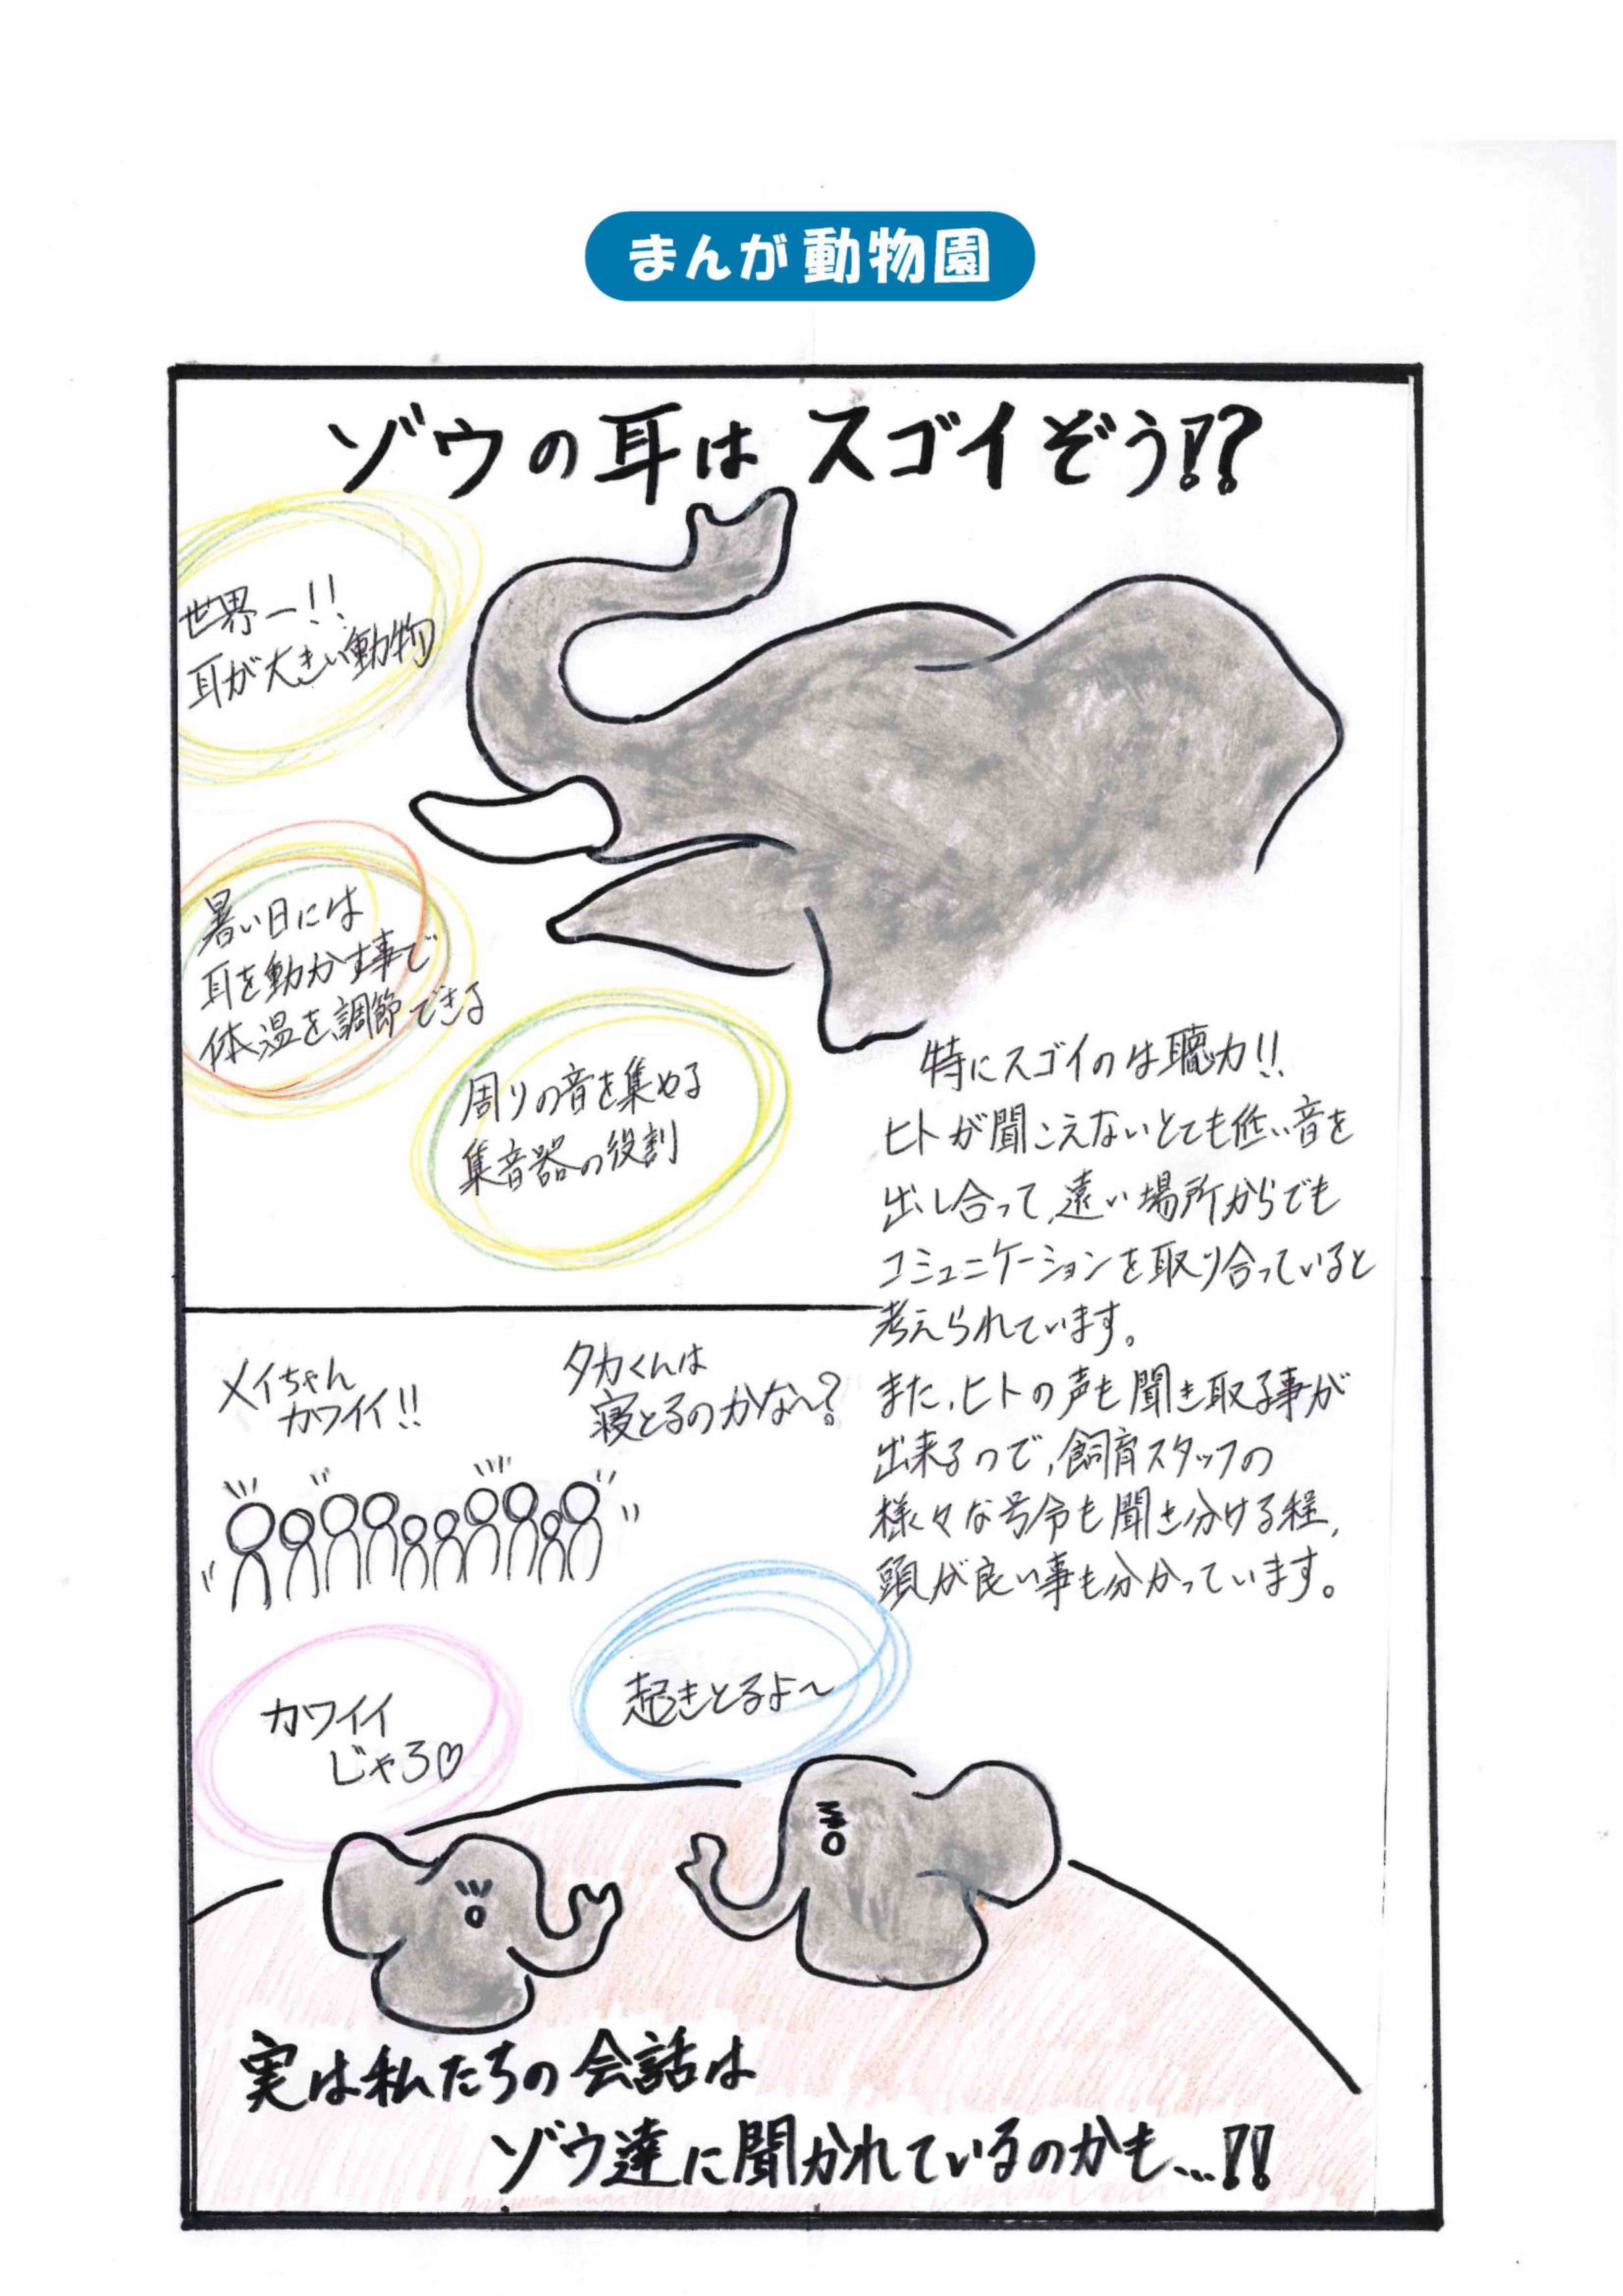 まんが動物園
ゾウの耳は スゴイぞう!!?
世界一!!
耳が大きい動物
暑い日には
耳を動かす事で
体温を調節できる
周りの音を集める
集音器の役割
特にスゴイのは聴力!!
ヒトが聞こえないとても低い音を
出し合って、遠い場所からでも
コミュニケーションを取り合っていると
考えられています。
また、ヒトの声も聞き取る事が
出来るので、飼育スタッフの
様々な号令も聞き分ける程、
頭が良い事も分かっています。
メイちゃん
カワイイ!!
タカくんは
寝とるのかな〜?
カワイイ
じゃろ♡
起きとるよ〜
実は私たちの会話は
ゾウ達に聞かれているのかも…!!